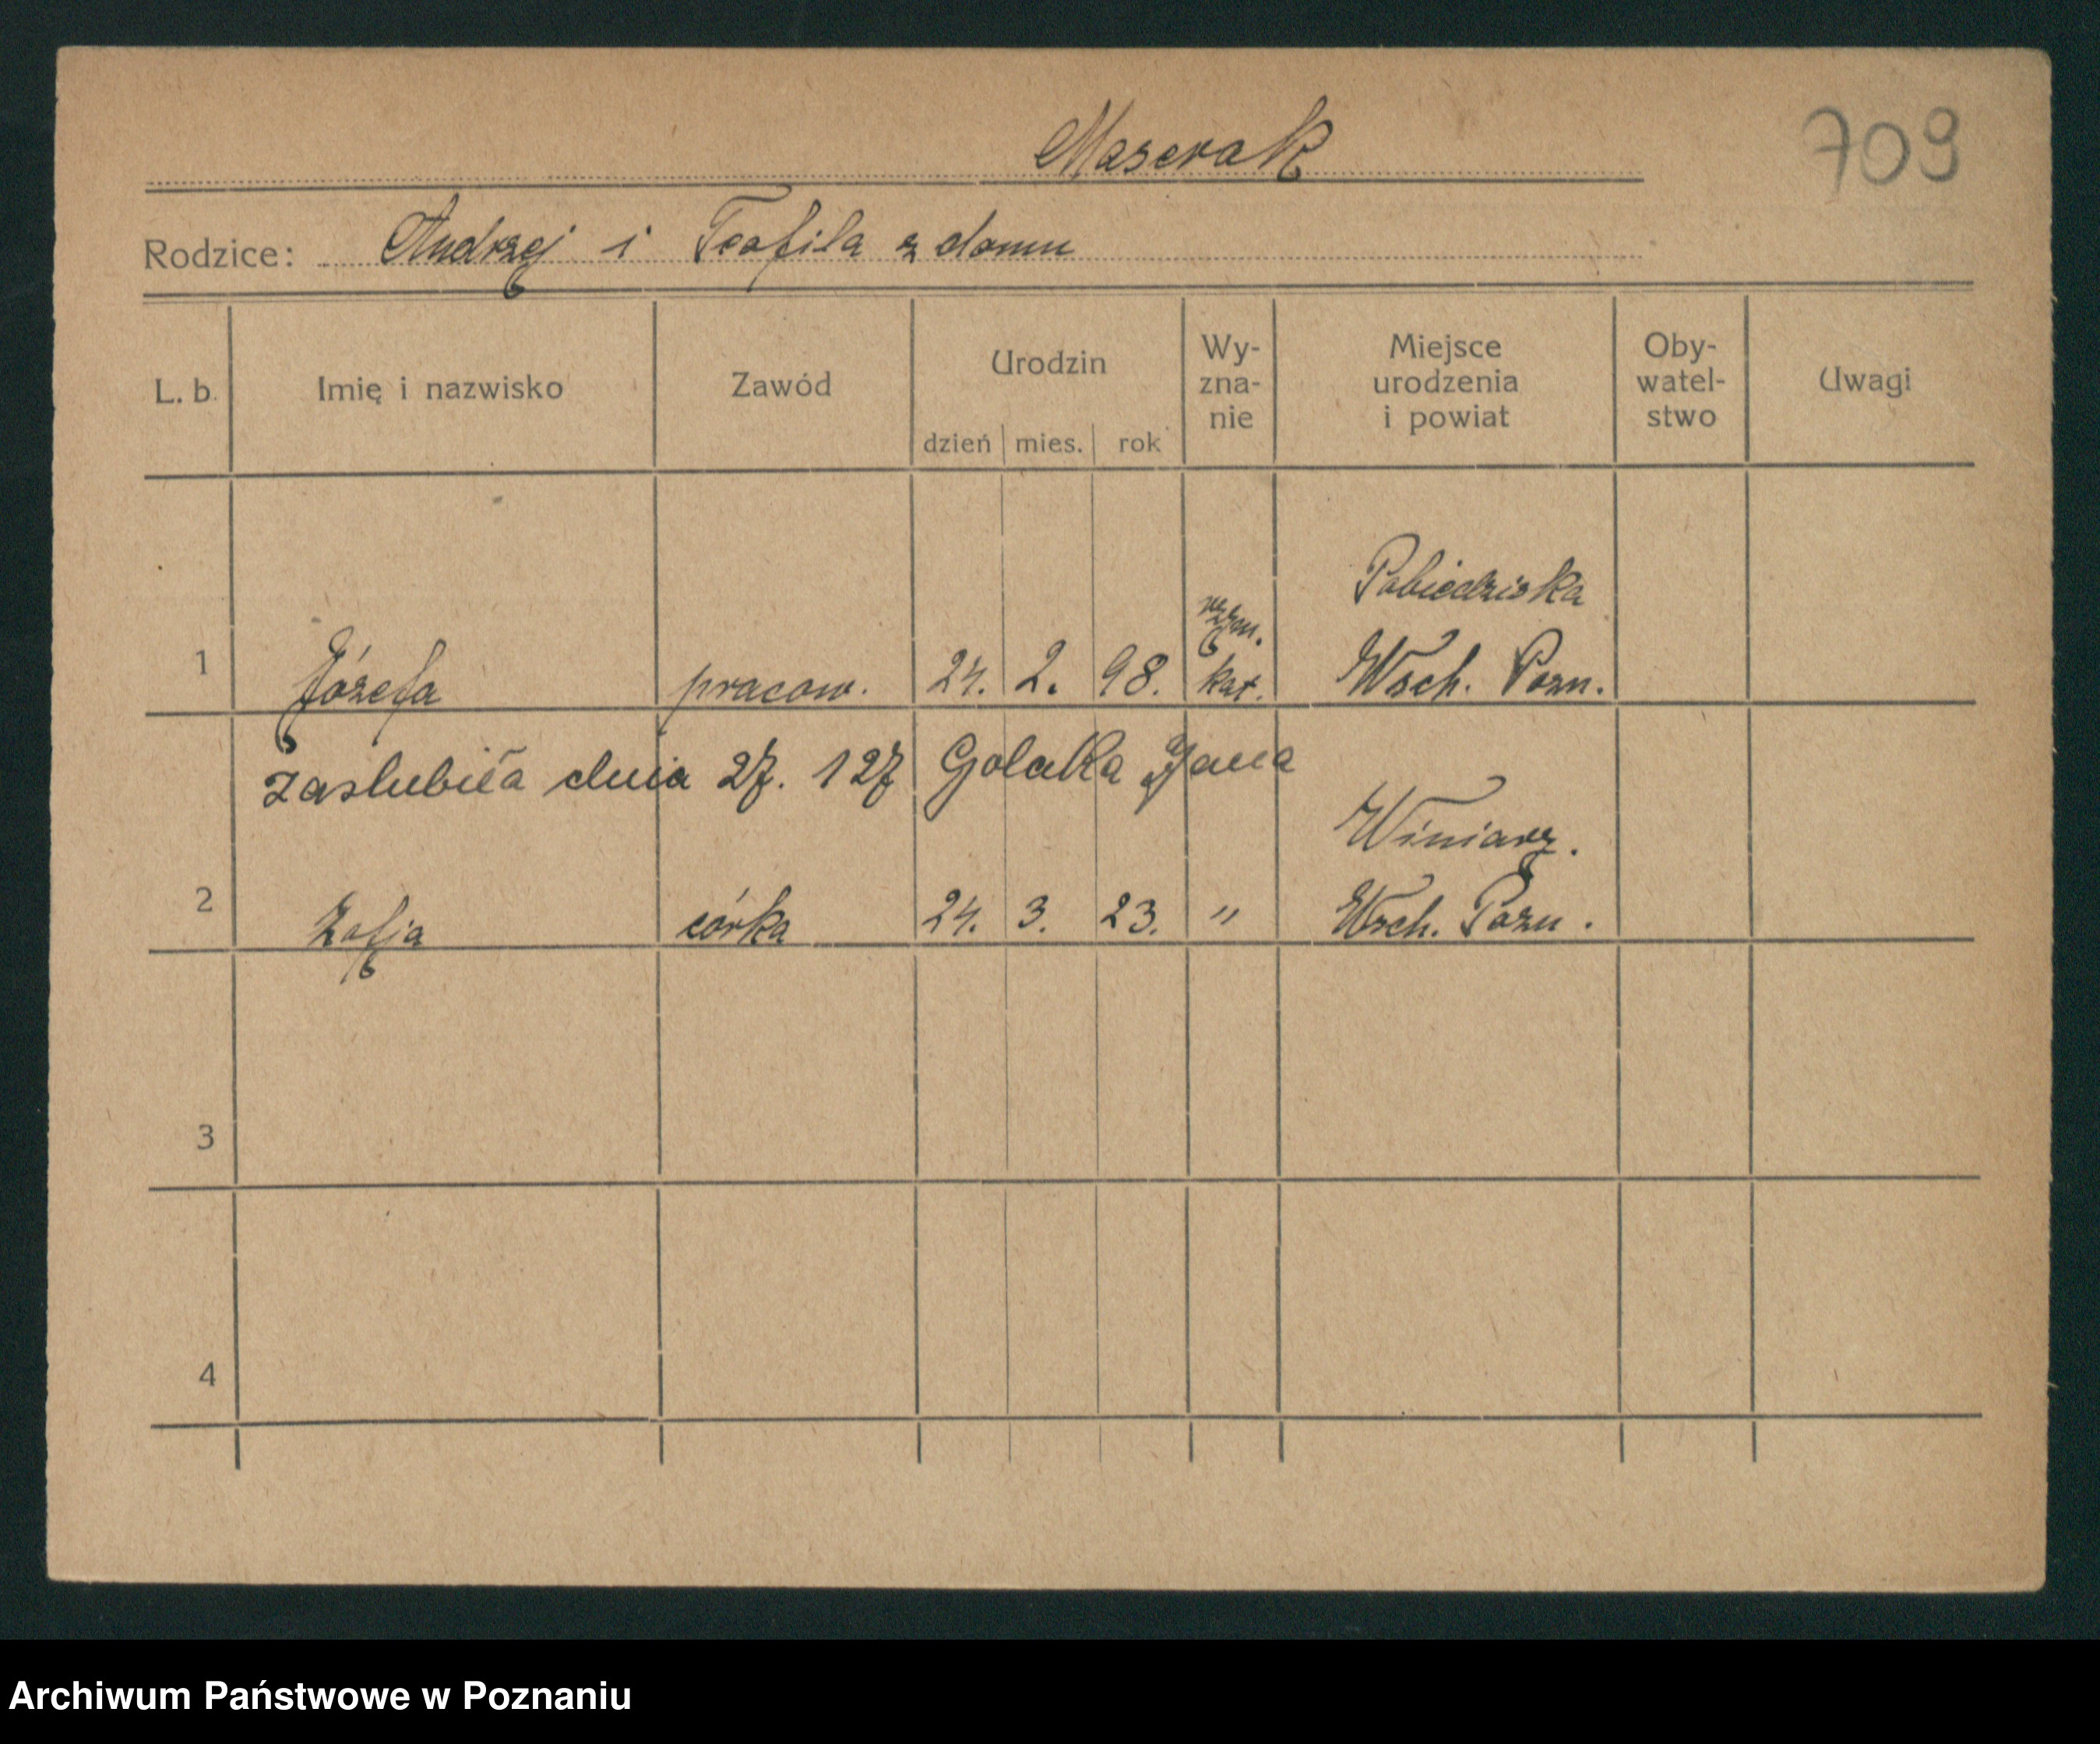 Maserak
709
Rodzice: Andrzej i Teofila z domu
L. b. Imię i nazwisko Zawód Urodzin dzień mies. rok Wy- zna- nie Miejsce urodzenia i powiat Oby- watel- stwo Uwagi
Pobiedziska
1 Józefa pracow. 24. 2. 98. rzym. kat. Wsch. Pozn.
Zaslubiła dnia 27. 1 27 Golaka Jana
Winiary.
2 Zofja córka 24. 3. 23. " Wsch. Pozn.
3
4
Archiwum Państwowe w Poznaniu